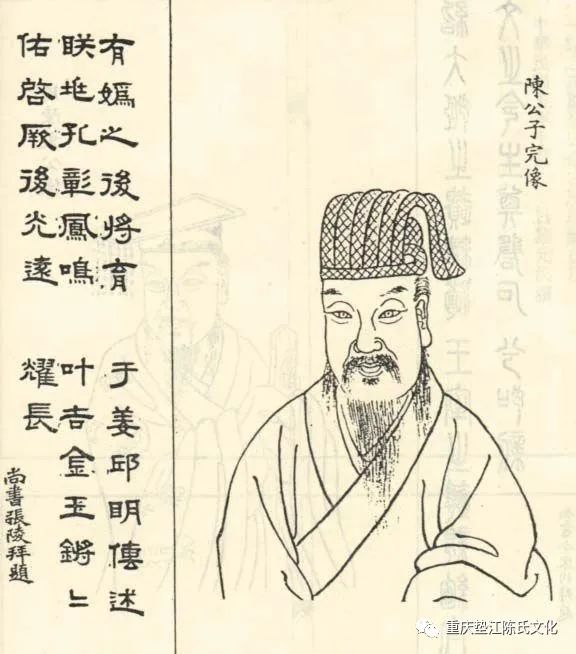 陳公子完像
有嬀之後將育 于姜邱明傳述
眹兆孔彰鳳鳴 叶吉金玉鏘〻
佑啓厥後光遠 耀長
尚書張陵拜題
重庆垫江陈氏文化